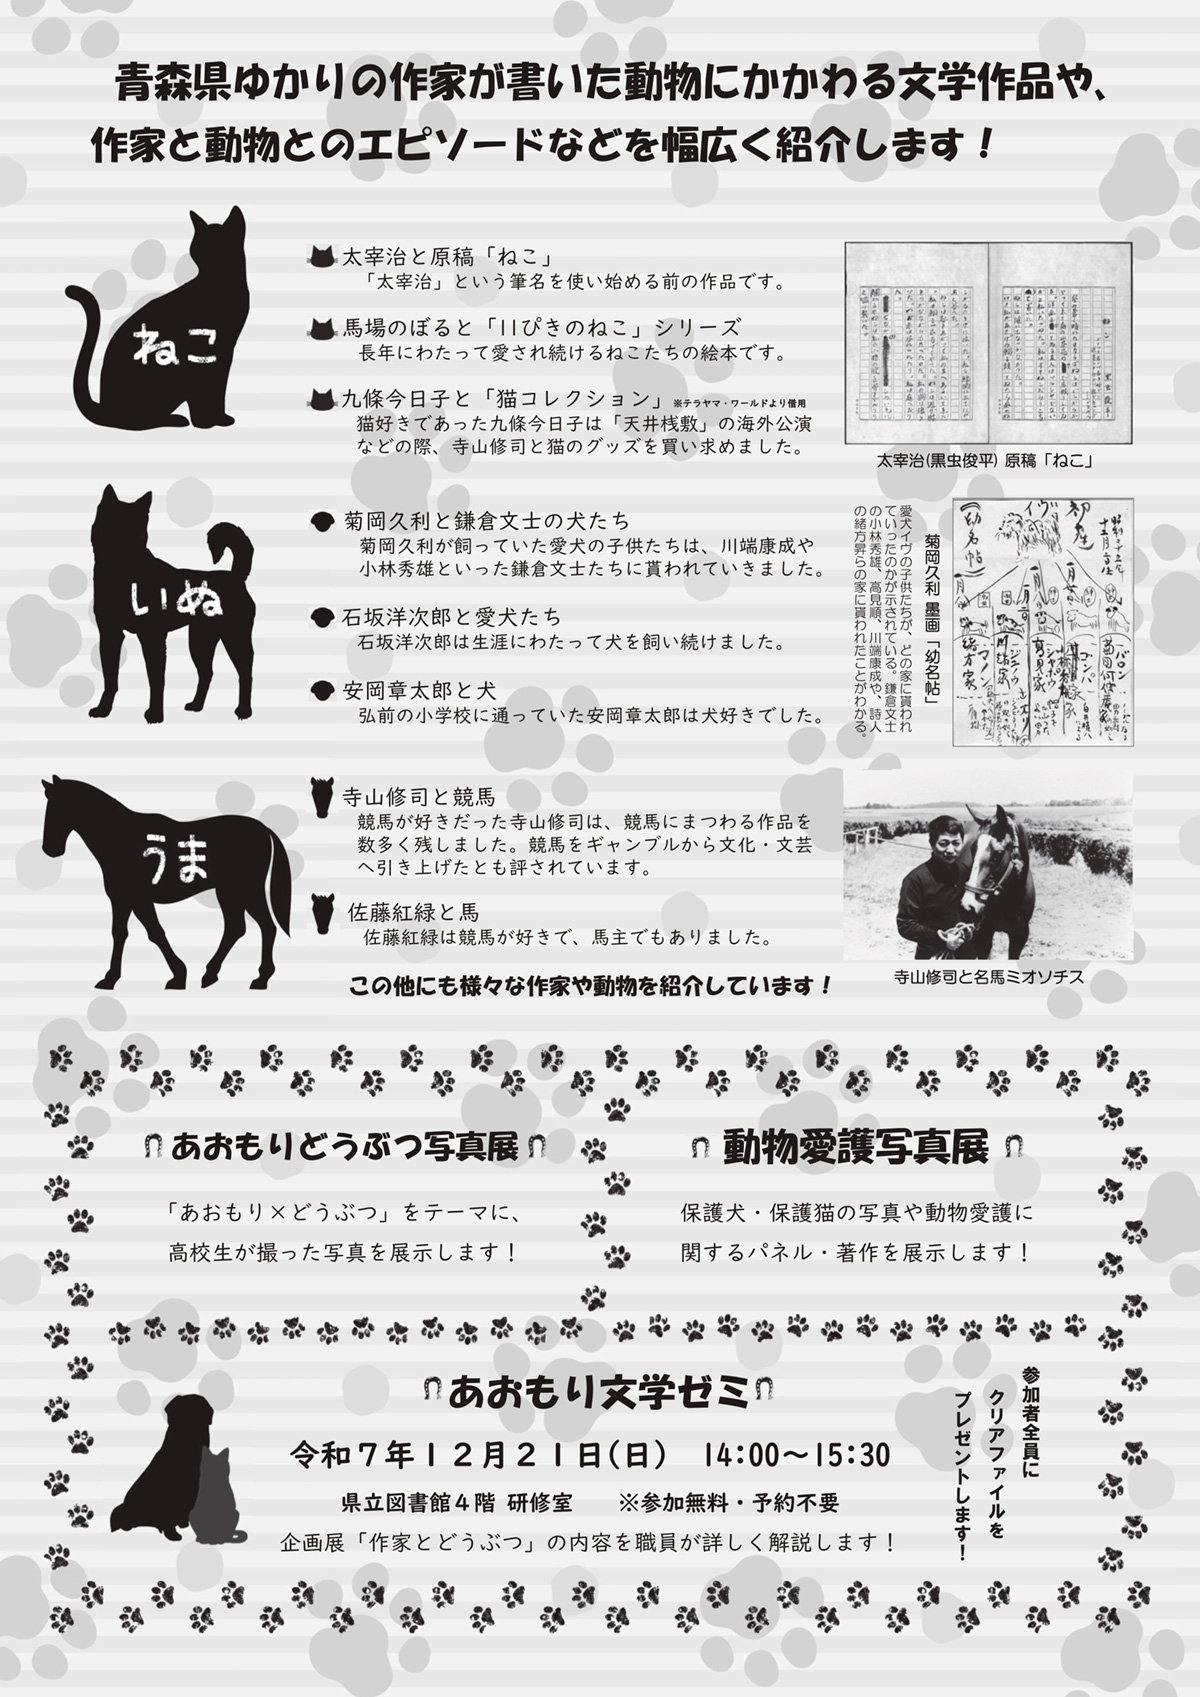 青森県ゆかりの作家が書いた動物にかかわる文学作品や、
作家と動物とのエピソードなどを幅広く紹介します！
ねこ
太宰治と原稿「ねこ」
「太宰治」という筆名を使い始める前の作品です。
馬場のぼると「11ぴきのねこ」シリーズ
長年にわたって愛され続けるねこたちの絵本です。
九條今日子と「猫コレクション」 ※テラヤマ・ワールドより借用
猫好きであった九條今日子は「天井桟敷」の海外公演
などの際、寺山修司と猫のグッズを買い求めました。
太宰治(黒虫俊平) 原稿「ねこ」
いぬ
菊岡久利と鎌倉文士の犬たち
菊岡久利が飼っていた愛犬の子供たちは、川端康成や
小林秀雄といった鎌倉文士たちに貰われていきました。
石坂洋次郎と愛犬たち
石坂洋次郎は生涯にわたって犬を飼い続けました。
安岡章太郎と犬
弘前の小学校に通っていた安岡章太郎は犬好きでした。
菊岡久利 墨画「幼名帖」
愛犬イヴの子供たちが、どの家に貰われ
ていったのかが示されている。鎌倉文士
の小林秀雄、高見順、川端康成や、詩人
の緒方昇らの家に貰われたことがわかる。
うま
寺山修司と競馬
競馬が好きだった寺山修司は、競馬にまつわる作品を
数多く残しました。競馬をギャンブルから文化・文芸
へ引き上げたとも評されています。
佐藤紅緑と馬
佐藤紅緑は競馬が好きで、馬主でもありました。
この他にも様々な作家や動物を紹介しています！
寺山修司と名馬ミオソチス
あおもりどうぶつ写真展
「あおもり×どうぶつ」をテーマに、
高校生が撮った写真を展示します！
動物愛護写真展
保護犬・保護猫の写真や動物愛護に
関するパネル・著作を展示します！
あおもり文学ゼミ
令和７年１２月２１日(日) 14:00～15:30
県立図書館４階 研修室 ※参加無料・予約不要
企画展「作家とどうぶつ」の内容を職員が詳しく解説します！
参加者全員に
クリアファイルを
プレゼントします！